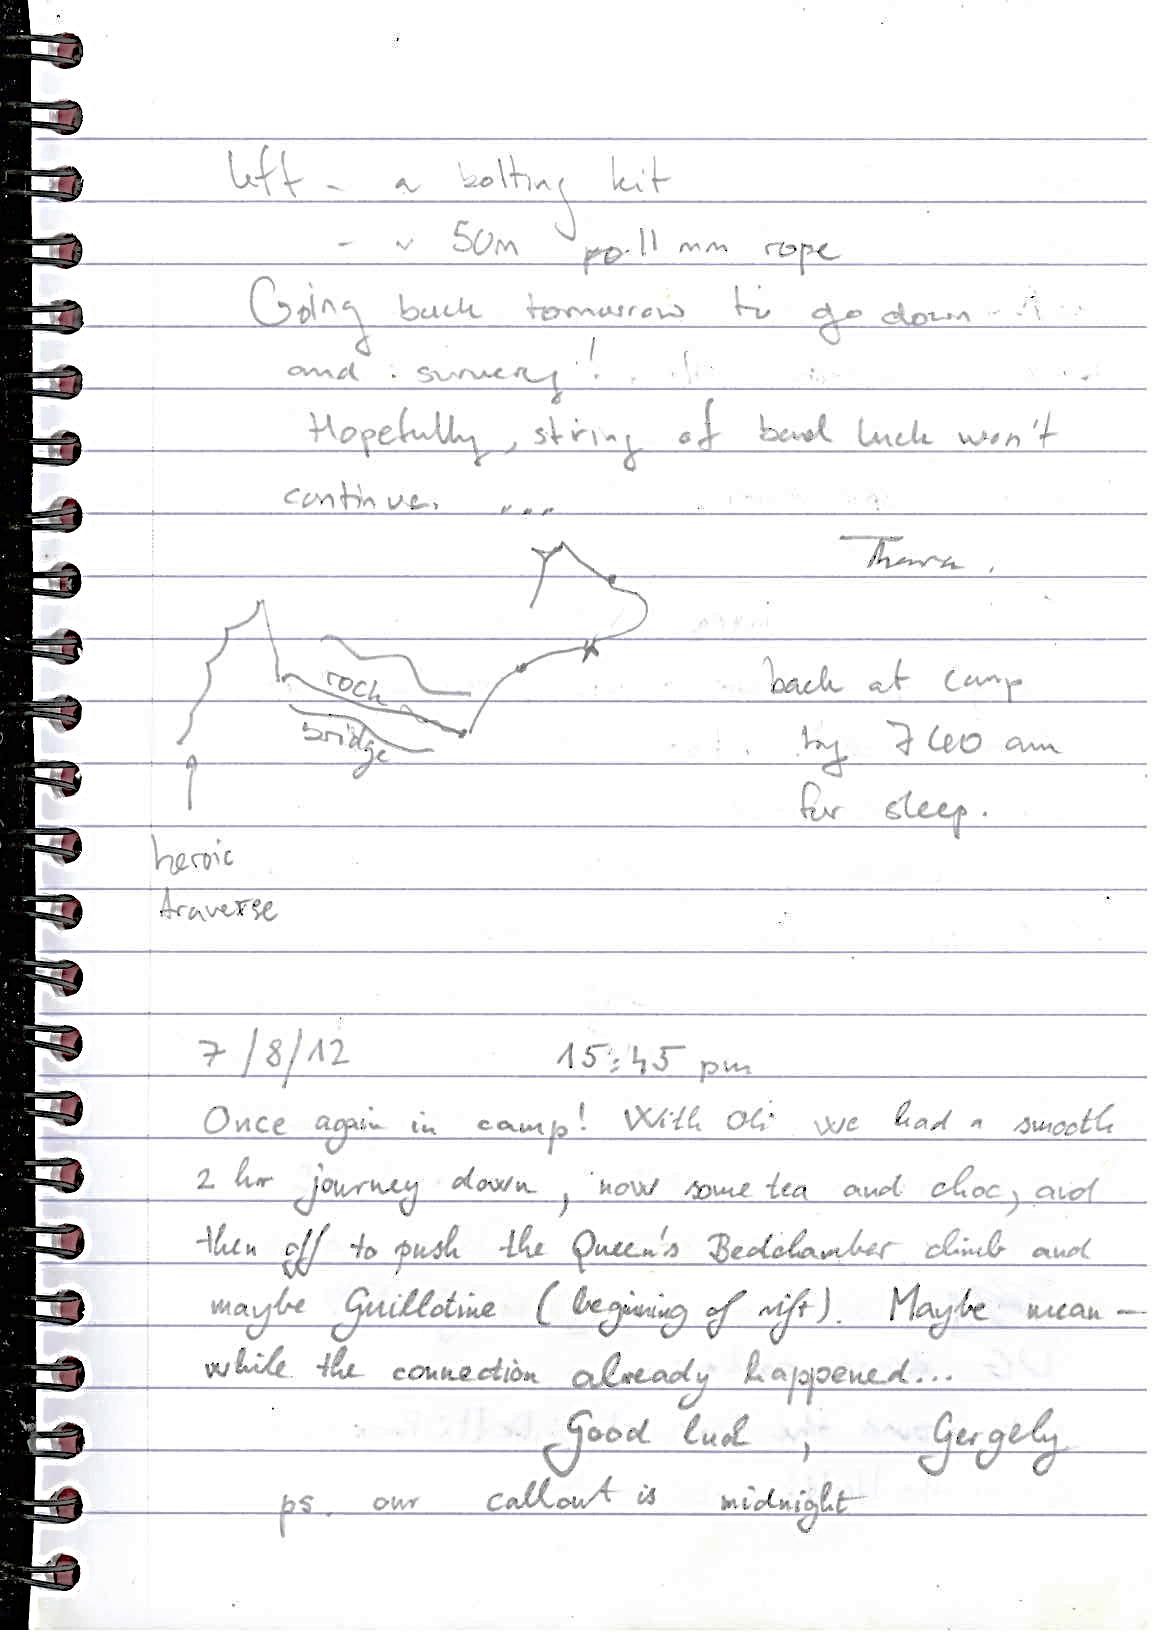 left - a bolting kit
- ~ 50m 11 mm rope
Going back tomorrow to go down
and survey!
Hopefully, string of bad luck won't
continue. ...
Thara.
rock
bridge
back at camp
by 7 40 am
for sleep.
heroic
traverse
7/8/12 15:45 pm
Once again in camp! With Oli we had a smooth
2 hr journey down, now some tea and choc, and
then off to push the Queen's Bedchamber climb and
maybe Guillotine (beginning of rift). Maybe mean-
while the connection already happened...
Good luck, Gergely
ps. our callout is midnight